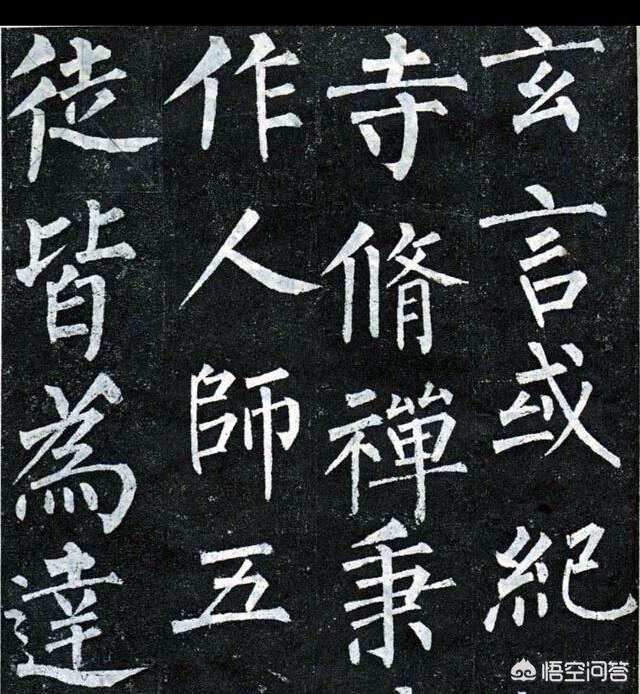 玄言或紀
寺脩禪秉
作人師五
徒皆為達
悟空问答